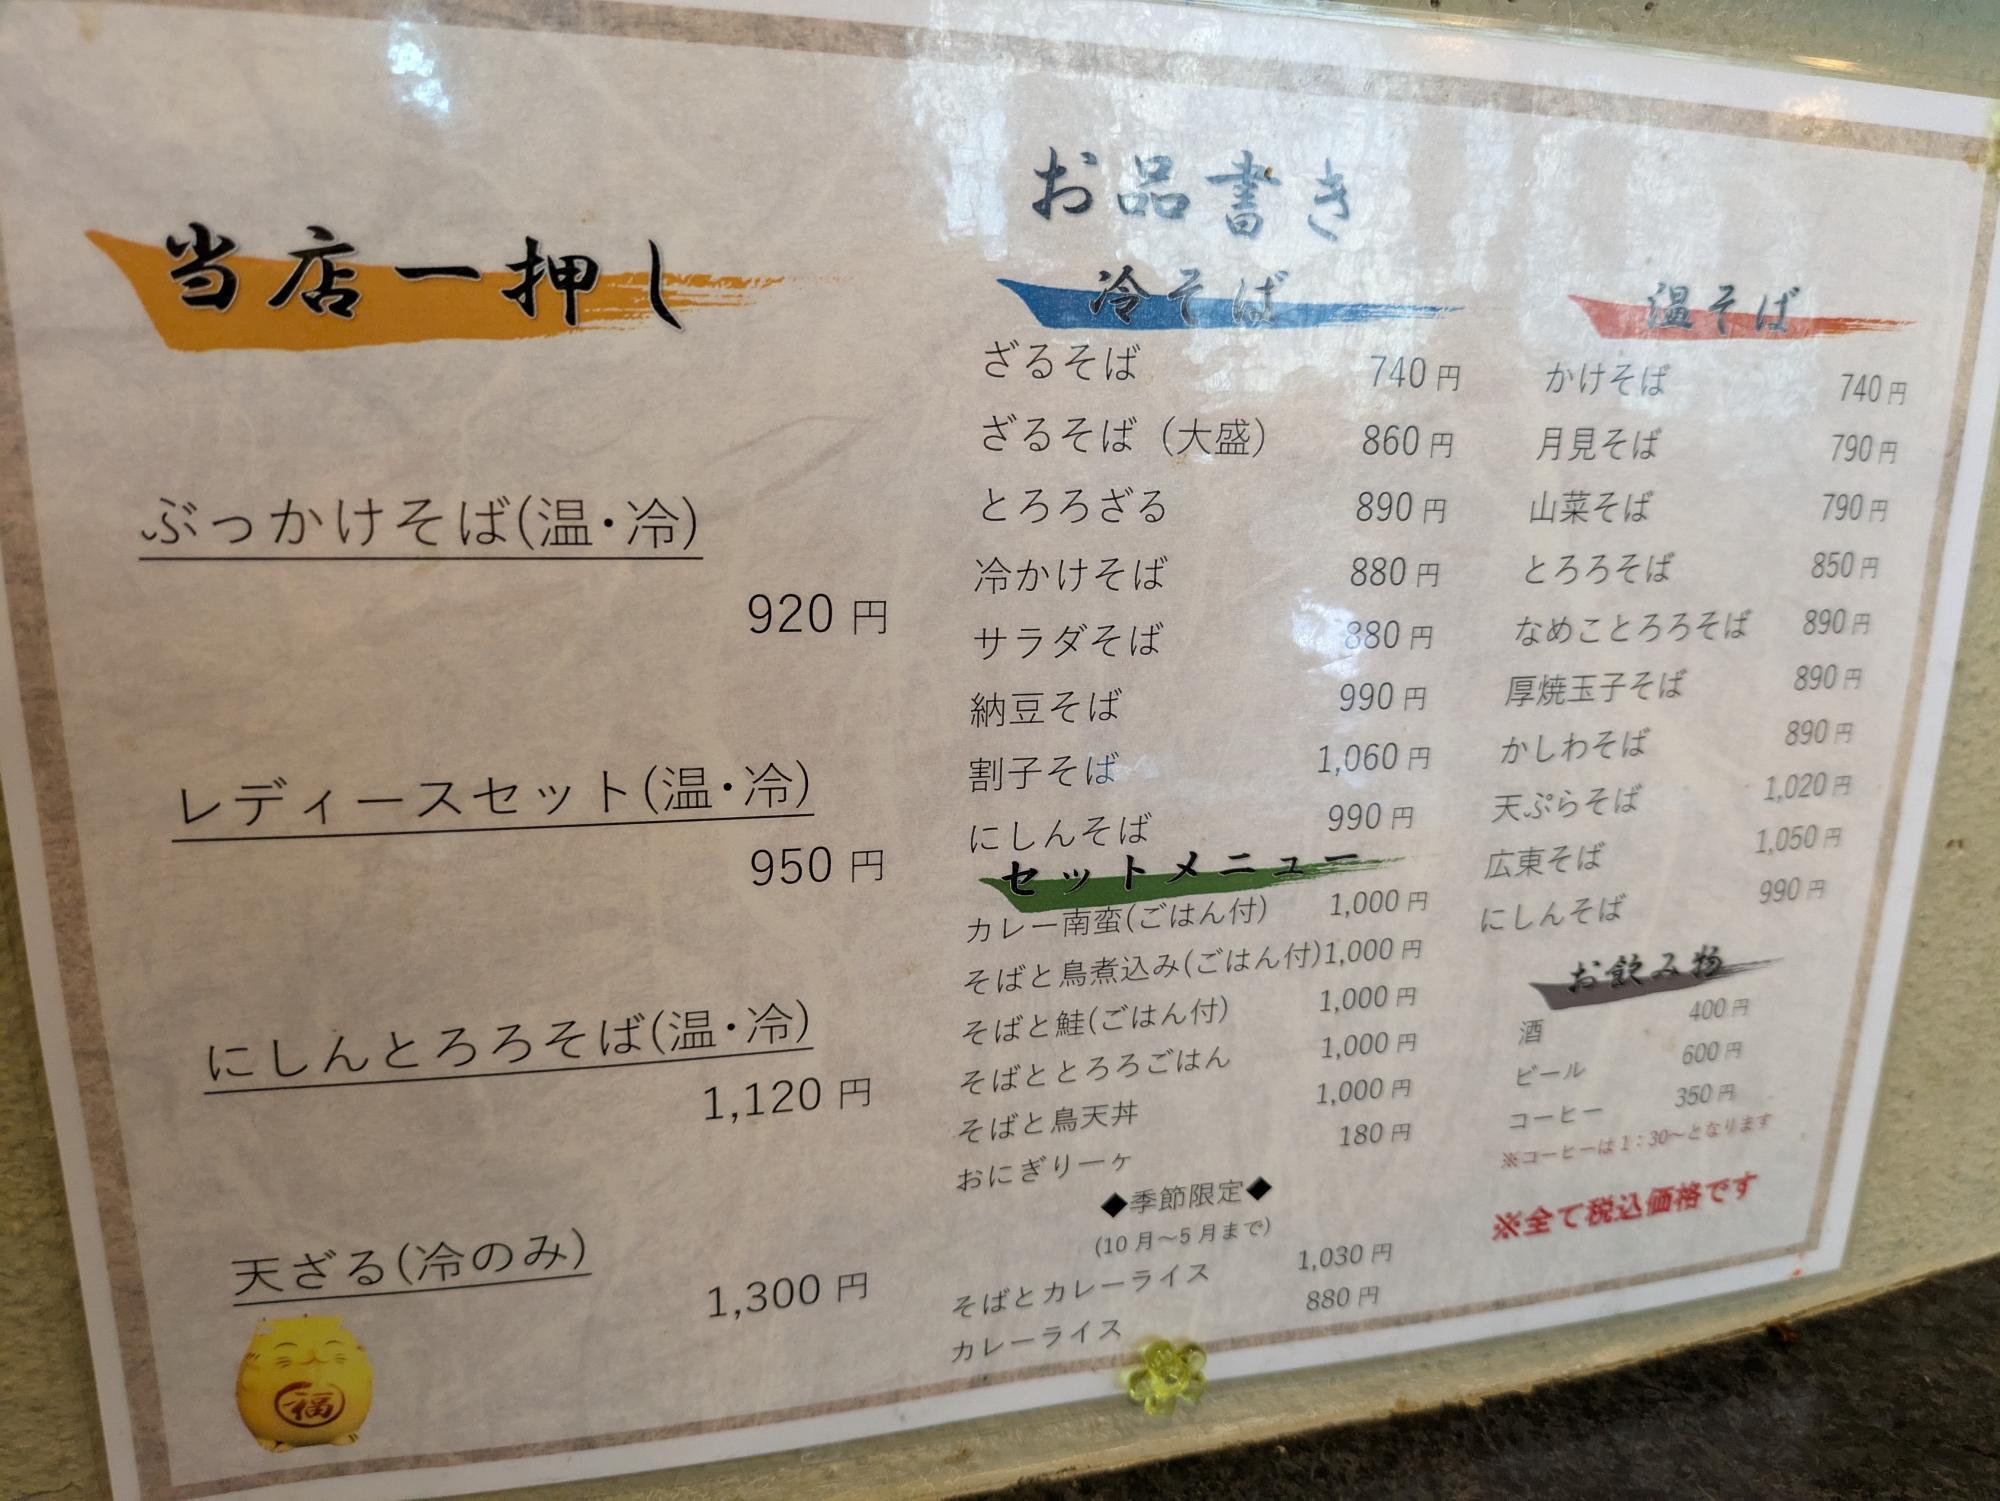 当店一押し
ぶっかけそば(温・冷)
920 円
レディースセット(温・冷)
950 円
にしんとろろそば(温・冷)
1,120 円
天ざる(冷のみ)
1,300 円
福
お品書き
冷そば
ざるそば 740 円
ざるそば（大盛） 860 円
とろろざる 890 円
冷かけそば 880 円
サラダそば 880 円
納豆そば 990 円
割子そば 1,060 円
にしんそば 990 円
セットメニュー
カレー南蛮(ごはん付) 1,000 円
そばと鳥煮込み(ごはん付) 1,000 円
そばと鮭(ごはん付) 1,000 円
そばととろろごはん 1,000 円
そばと鳥天丼 1,000 円
おにぎり一ヶ 180 円
◆季節限定◆
(10 月～5 月まで)
そばとカレーライス 1,030 円
カレーライス 880 円
温そば
かけそば 740 円
月見そば 790 円
山菜そば 790 円
とろろそば 850 円
なめことろろそば 890 円
厚焼玉子そば 890 円
かしわそば 890 円
天ぷらそば 1,020 円
広東そば 1,050 円
にしんそば 990 円
お飲み物
酒 400 円
ビール 600 円
コーヒー 350 円
※コーヒーは 1：30～となります
※全て税込価格です